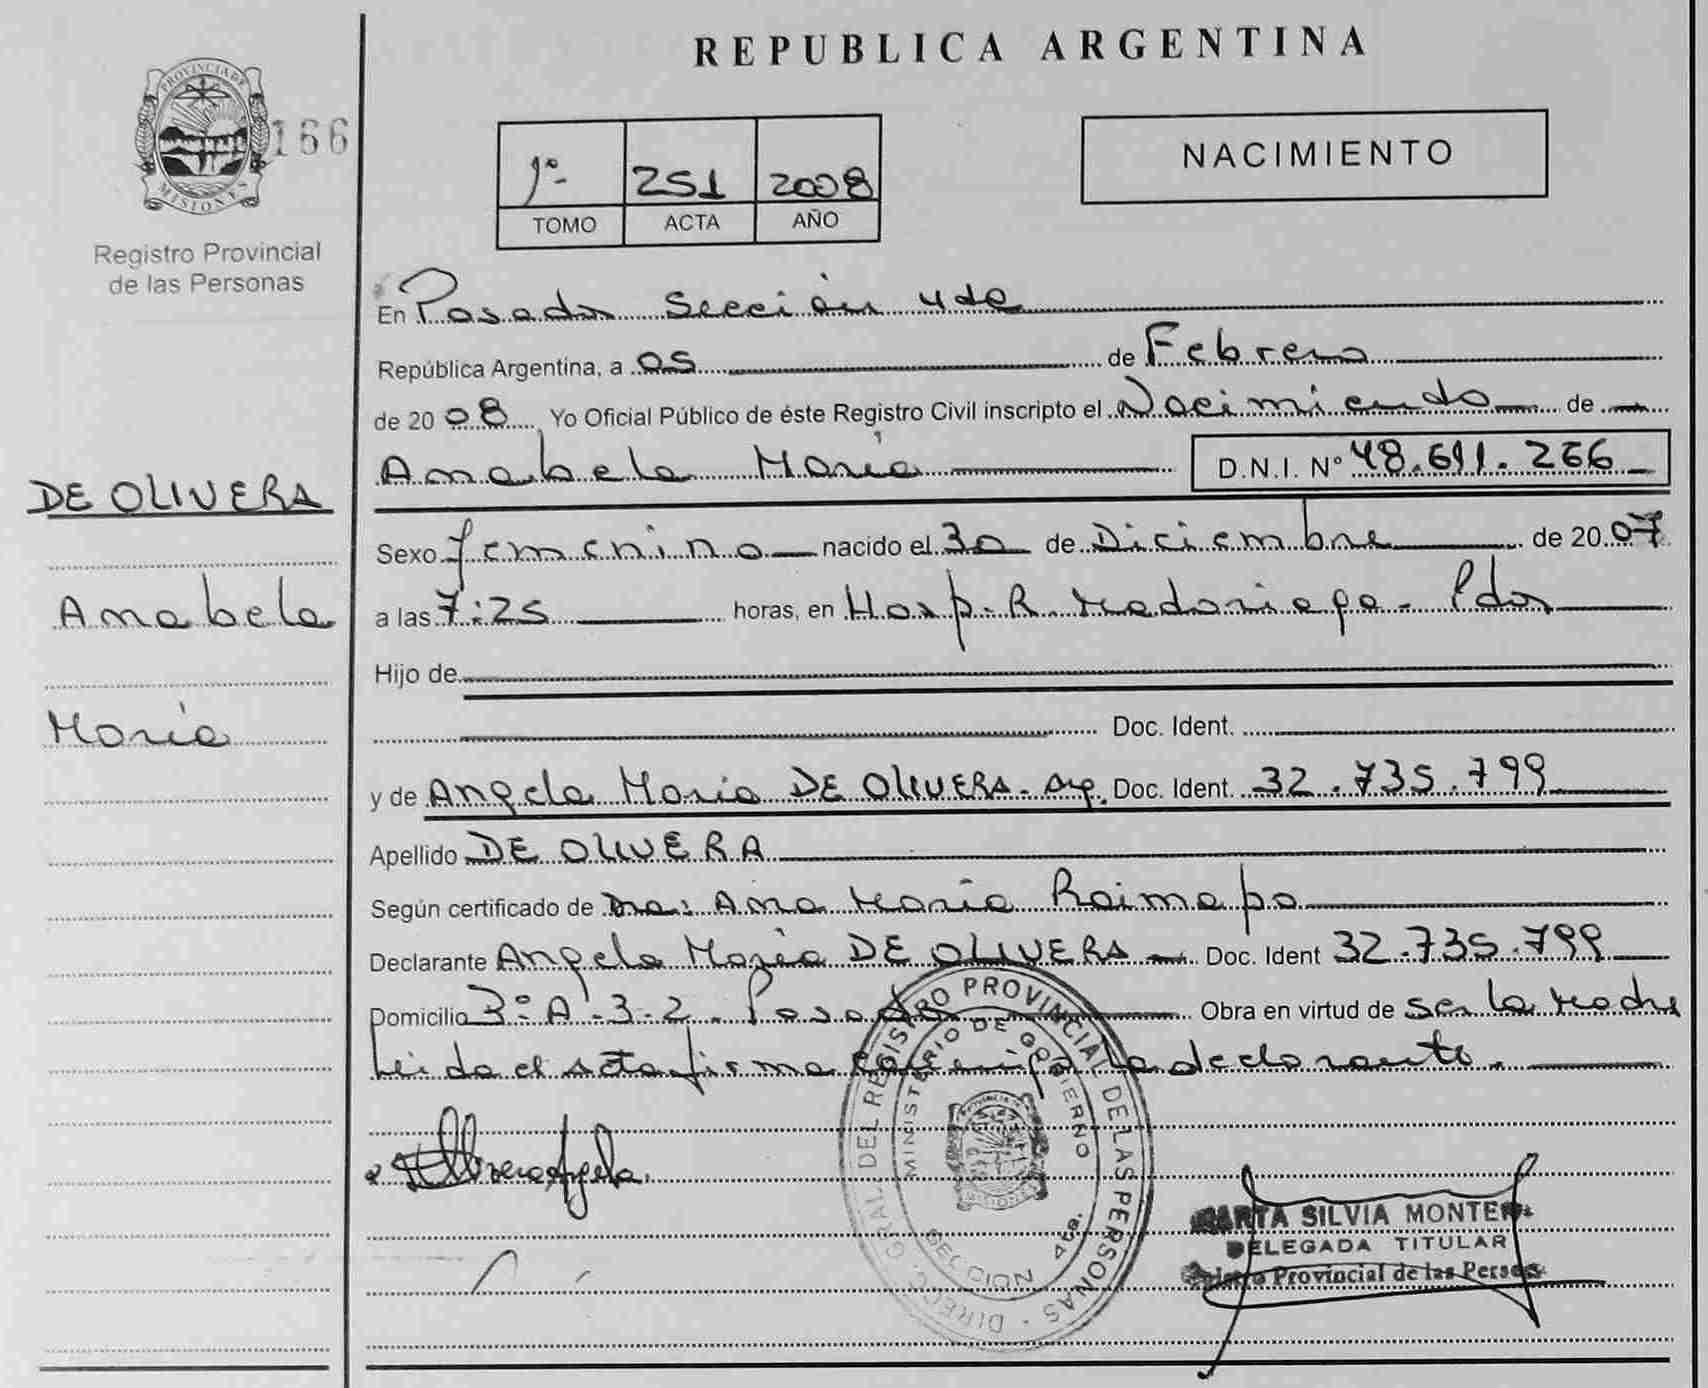 REPUBLICA ARGENTINA
PROVINCIA DE
MISIONES
166
Registro Provincial
de las Personas
1º- 251 2008
TOMO ACTA AÑO
NACIMIENTO
En Posadas Sección 4de
República Argentina, a 05 de Febrero
de 2008 Yo Oficial Público de éste Registro Civil inscripto el Nacimiento de
Anabela María D.N.I. Nº 48.611.266
DE OLIVERA
Anabela
María
Sexo femenino nacido el 30 de Diciembre de 2007
a las 7:25 horas, en Hosp. R. Madariaga - Pdas
Hijo de
Doc. Ident.
y de Angela Maria DE OLIVERA - Arg. Doc. Ident. 32.735.799
Apellido DE OLIVERA
Según certificado de Dra: Ana María Raimapo
Declarante Angela María DE OLIVERA Doc. Ident 32.735.799
Domicilio 3º A 3-2. Posadas Obra en virtud de ser la Madre
Leida el acta firma conmigo la declarante.
DIREC. GRAL. DEL REGISTRO PROVINCIAL DE LAS PERSONAS
MINISTERIO DE GOBIERNO
SECCION 4ta.
MARTA SILVIA MONTERO
DELEGADA TITULAR
Registro Provincial de las Personas